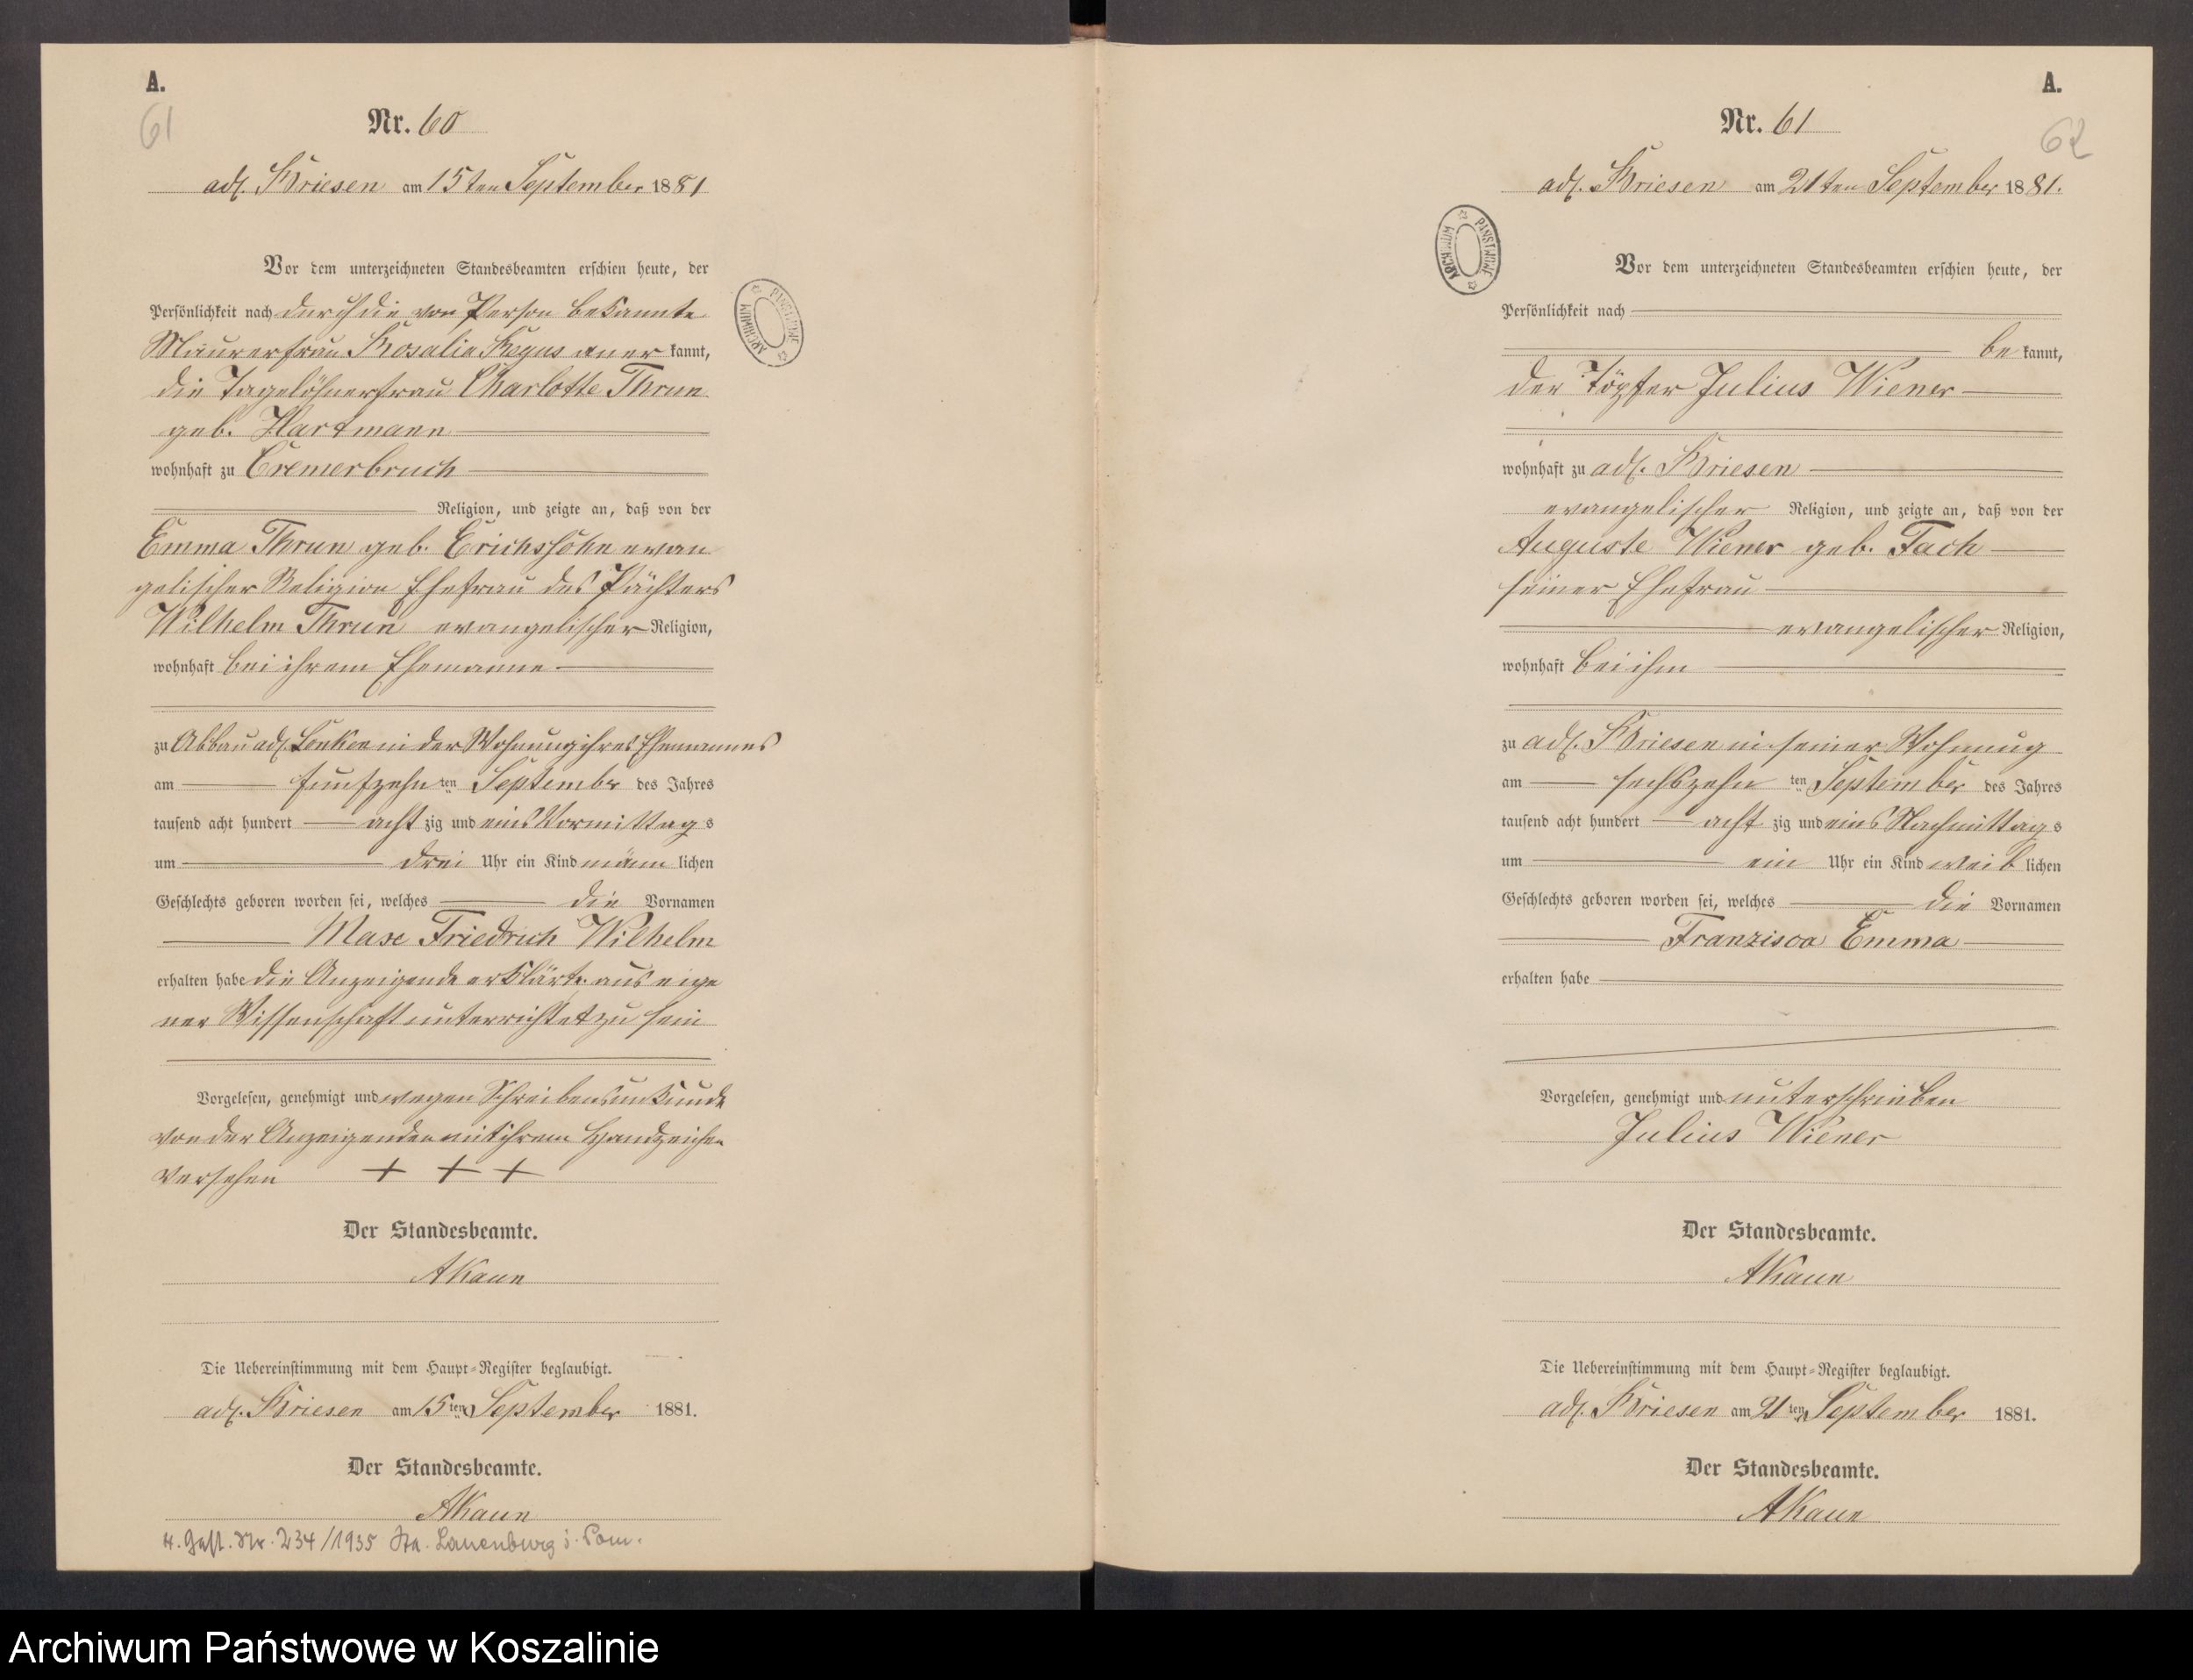 A.
61
Nr. 60
adl. Briesen am 15ten September 1881
Vor dem unterzeichneten Standesbeamten erschien heute, der
Persönlichkeit nach durch die von Person bekannte
Maurerfrau Rosalie aner kannt,
die Tagelöhnerfrau Charlotte Thrun
geb. Hartmann
wohnhaft zu Cremerbruch
Religion, und zeigte an, daß von der
Emma Thrun geb. Erichshöhn evan
gelischer Religion Ehefrau des Pächters
Wilhelm Thrun evangelischer Religion,
wohnhaft bei ihrem Ehemanne
zu Abbau adl. Lonken in der Wohnung ihres Ehemannes
am fünfzehn ten September des Jahres
tausend acht hundert acht zig und eins Vormittags
um drei Uhr ein Kind männ lichen
Geschlechts geboren worden sei, welches die Vornamen
Max Friedrich Wilhelm
erhalten habe die Anzeigende erklärte aus eige
ner Wissenschaft unterrichtet zu sein
Vorgelesen, genehmigt und wegen Schreibensunkunde
von der Anzeigenden mit ihrem Handzeichen
versehen + + +
Der Standesbeamte.
AKaun
Die Uebereinstimmung mit dem Haupt-Register beglaubigt.
adl. Briesen am 15ten September 1881.
Der Standesbeamte.
AKaun
Nr. 234/1935 Sta. Lauenburg i. Pom.
ARCHIWUM PAŃSTWOWE
A.
62
Nr. 61
adl. Briesen am 21ten September 1881.
Vor dem unterzeichneten Standesbeamten erschien heute, der
Persönlichkeit nach
be kannt,
der Töpfer Julius Wiener
wohnhaft zu adl. Briesen
evangelischer Religion, und zeigte an, daß von der
Auguste Wiener geb. Tach
seiner Ehefrau
evangelischer Religion,
wohnhaft bei ihm
zu adl. Briesen in seiner Wohnung
am sechszehn ten September des Jahres
tausend acht hundert acht zig und eins Nachmittags
um ein Uhr ein Kind weib lichen
Geschlechts geboren worden sei, welches die Vornamen
Franzisca Emma
erhalten habe
Vorgelesen, genehmigt und unterschrieben
Julius Wiener
Der Standesbeamte.
AKaun
Die Uebereinstimmung mit dem Haupt-Register beglaubigt.
adl. Briesen am 21ten September 1881.
Der Standesbeamte.
AKaun
ARCHIWUM PAŃSTWOWE
Archiwum Państwowe w Koszalinie